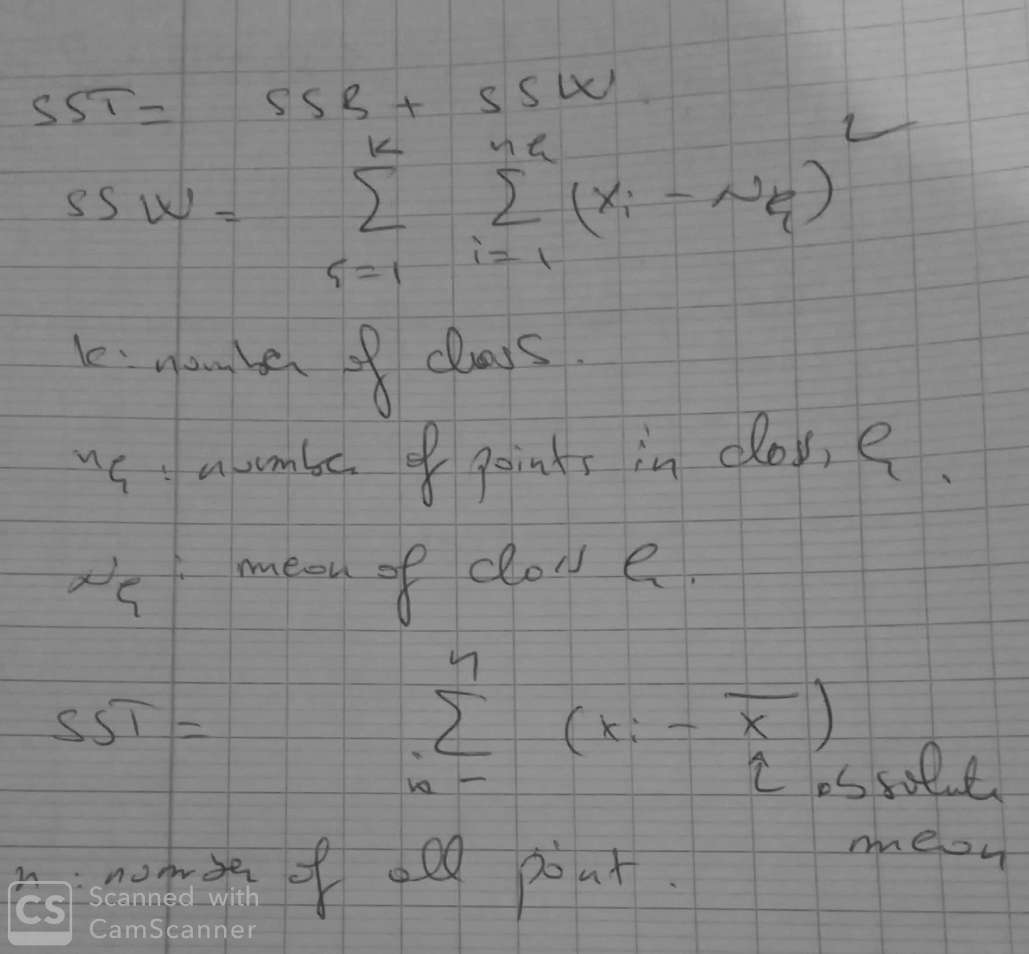 SST = SSB + SSW
SSW = K∑ς=1 nς∑i=1 (xi - Nς)²
k: number of class.
nς : number of points in class, ς.
Nς : mean of class ς.
SST = n∑i= (xi - x̄)
↑ absolute
mean
n : number of all point.
CS Scanned with
CamScanner